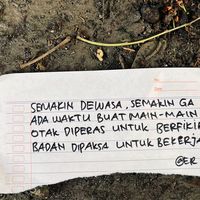 SEMAKIN DEWASA, SEMAKIN GA
ADA WAKTU BUAT MAIN-MAIN
OTAK DIPERAS UNTUK BERFIKIR
BADAN DIPAKSA UNTUK BEKERJA
@ER